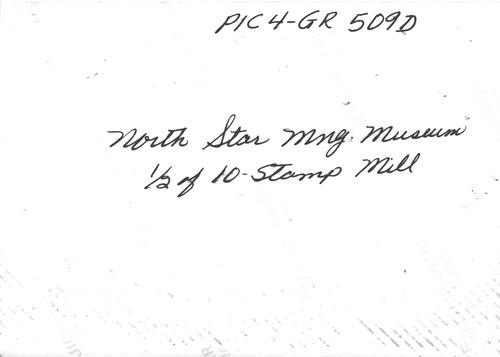 PIC 4-GR 509D
North Star Mng. Museum
1/2 of 10-Stamp Mill